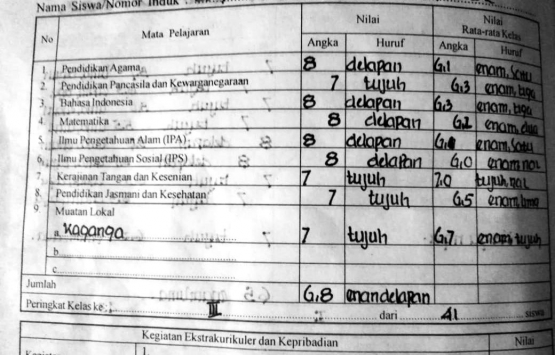 Nama Siswa/Nomor Induk
No Mata Pelajaran Nilai Nilai Rata-rata Kelas
Angka Huruf Angka Huruf
1. Pendidikan Agama 8 delapan 6,1 enam, satu
2. Pendidikan Pancasila dan Kewarganegaraan 7 tujuh 6,3 enam, tiga
3. Bahasa Indonesia 8 delapan 6,3 enam, tiga
4. Matematika 8 delapan 6,2 enam, dua
5. Ilmu Pengetahuan Alam (IPA) 8 delapan 6,1 enam, satu
6. Ilmu Pengetahuan Sosial (IPS) 8 delapan 6,0 enam nol
7. Kerajinan Tangan dan Kesenian 7 tujuh 7,0 tujuh, nol
8. Pendidikan Jasmani dan Kesehatan 7 tujuh 6,5 enam, lima
9. Muatan Lokal
a. Kaganga 7 tujuh 6,7 enam tujuh
b.
c.
Jumlah 6,8 enam delapan
Peringkat Kelas ke : III dari 41 siswa
Kegiatan Ekstrakurikuler dan Kepribadian Nilai
1.